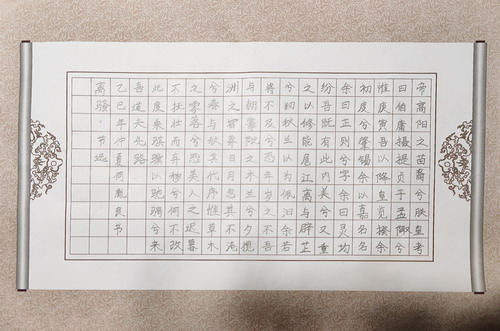 帝高阳之苗裔兮朕皇考
曰伯庸摄提贞于孟陬兮
惟庚寅吾以降皇览揆余
初度兮肇锡余以嘉名名
余曰正则兮字余曰灵均
纷吾既有此内美兮又重
之以修能扈江离与辟芷
兮纫秋兰以为佩汨余若
将不及兮恐年岁之不吾
与朝搴阰之木兰兮夕揽
洲之宿莽日月忽其不淹
兮春与秋其代序惟草木
之零落兮恐美人之迟暮
不抚壮而弃秽兮何不改
此度乘骐骥以驰骋兮来
吾道夫先路
乙巳年仲夏何胤良书
离骚·节选